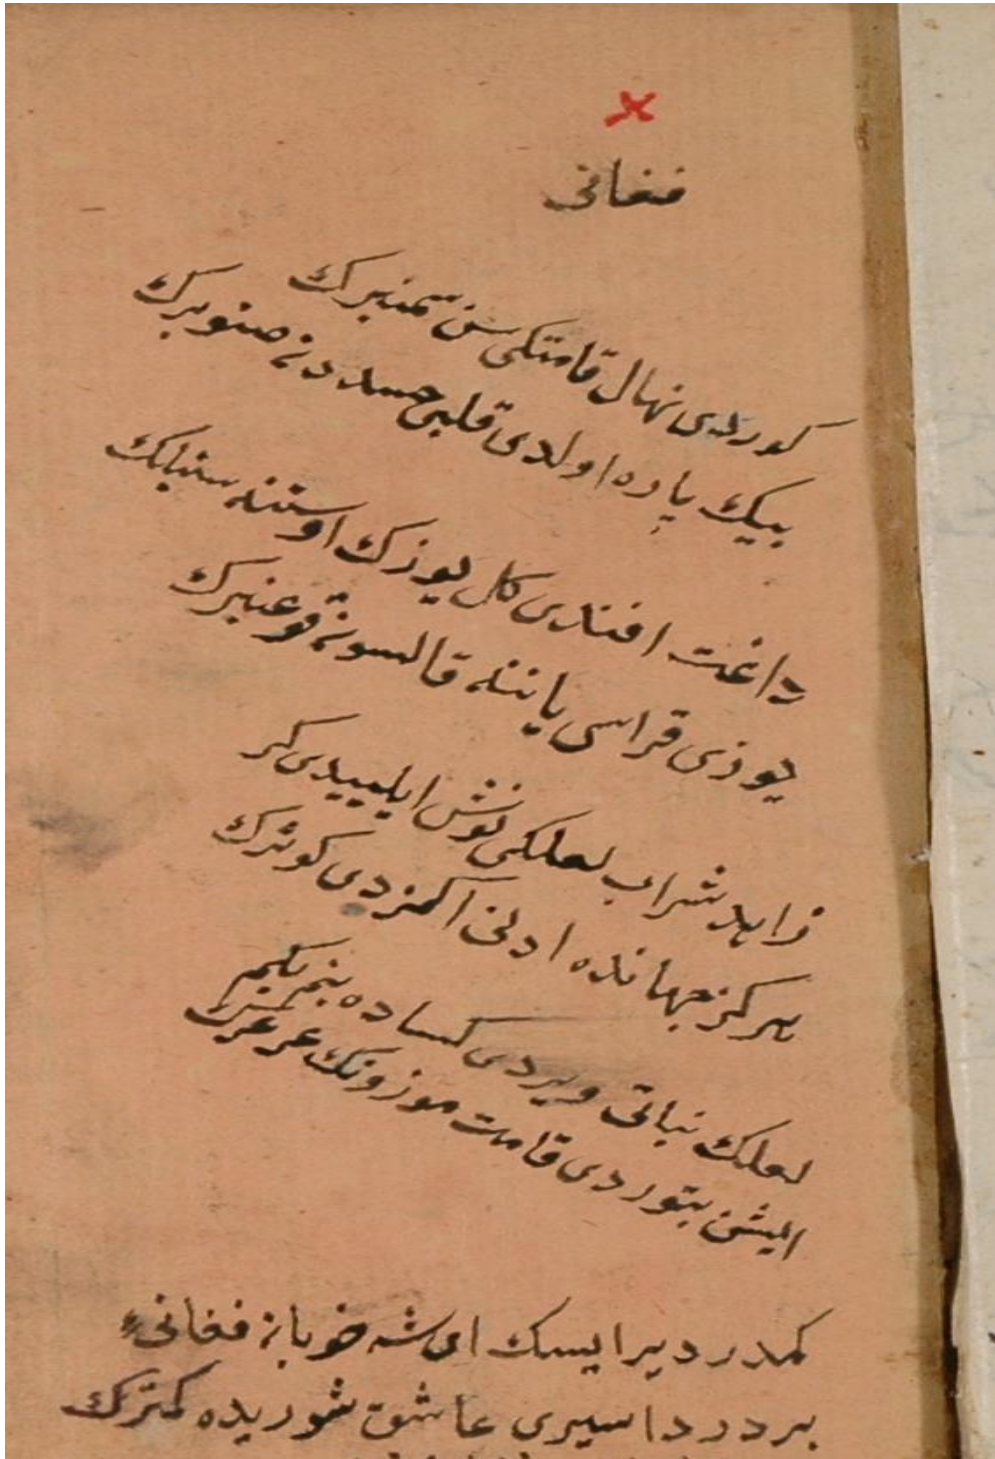 فغانی
کوردی نهال قامتکی سن سمنبرک
بیك پاره اولدی قلبی حسددن صنوبرك
داغت افندی کل یوزك اوستنه سنبلك
یوزی قراسی یاننه قالسون قو عنبرك
زاهد شراب لعلکی نوش ایلییدی کر
هرکز جهانده ادنی اکمزدی کوثرك
لعلك نباتی ویردی کساده بنم بکم
ایشن بتوردی قامت موزونك عرعرك
کمدر دیرایسك ای شه خوبان فغانیء
بر درد اسیری عاشق شوریده کمترك